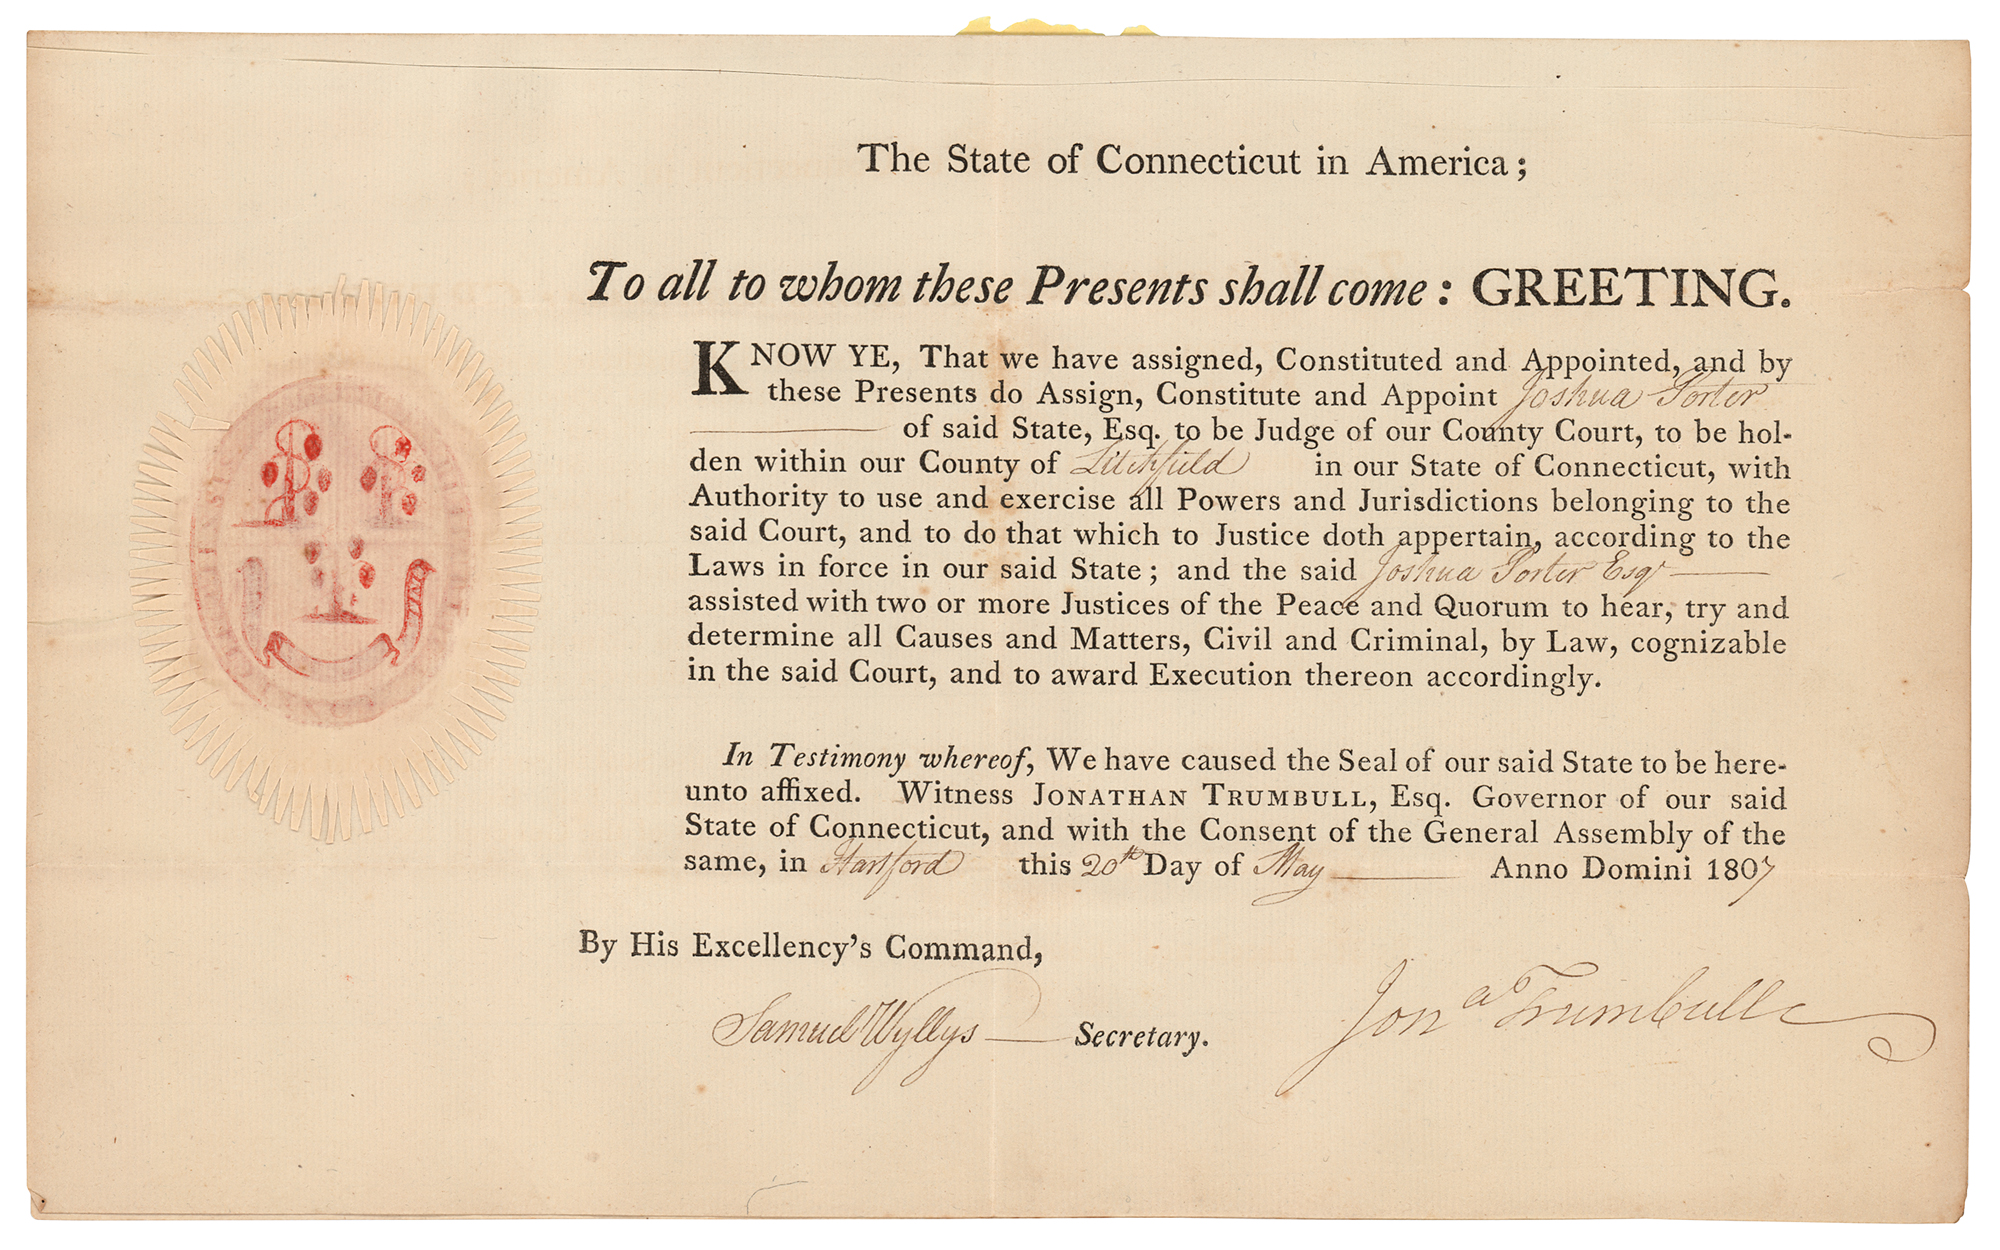 The State of Connecticut in America;
To all to whom these Presents shall come: GREETING.
KNOW YE, That we have assigned, Constituted and Appointed, and by
these Presents do Assign, Constitute and Appoint Joshua Porter
of said State, Esq. to be Judge of our County Court, to be hol-
den within our County of Litchfield in our State of Connecticut, with
Authority to use and exercise all Powers and Jurisdictions belonging to the
said Court, and to do that which to Justice doth appertain, according to the
Laws in force in our said State; and the said Joshua Porter Esqr
assisted with two or more Justices of the Peace and Quorum to hear, try and
determine all Causes and Matters, Civil and Criminal, by Law, cognizable
in the said Court, and to award Execution thereon accordingly.
In Testimony whereof, We have caused the Seal of our said State to be here-
unto affixed. Witness JONATHAN TRUMBULL, Esq. Governor of our said
State of Connecticut, and with the Consent of the General Assembly of the
same, in Hartford this 20th Day of May Anno Domini 1807
By His Excellency's Command,
Samuel Wyllys Secretary.
Jona Trumbull